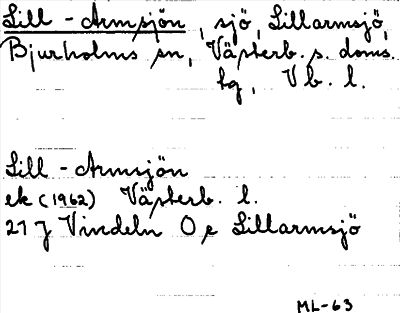 Lill-Armsjön, sjö, Lillarmsjö,
Bjurholms sn, Västerb. s. doms.
lg, Vb. l.
Lill-Armsjön
ek (1962) Västerb. l.
21 J Vindeln O,e Lillarmsjö
ML-63